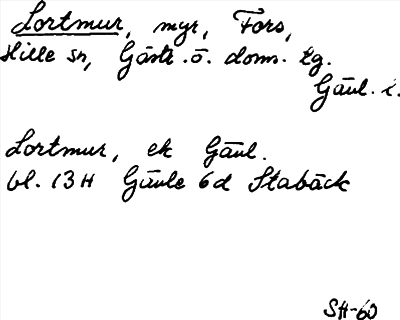 Lortmur, myr, Fors,
Hille sn, Gästr. ö. doms. tg.
Gävl. l.
Lortmur, ek Gävl.
bl. 13H Gävle 6d Stabäck
SH-60